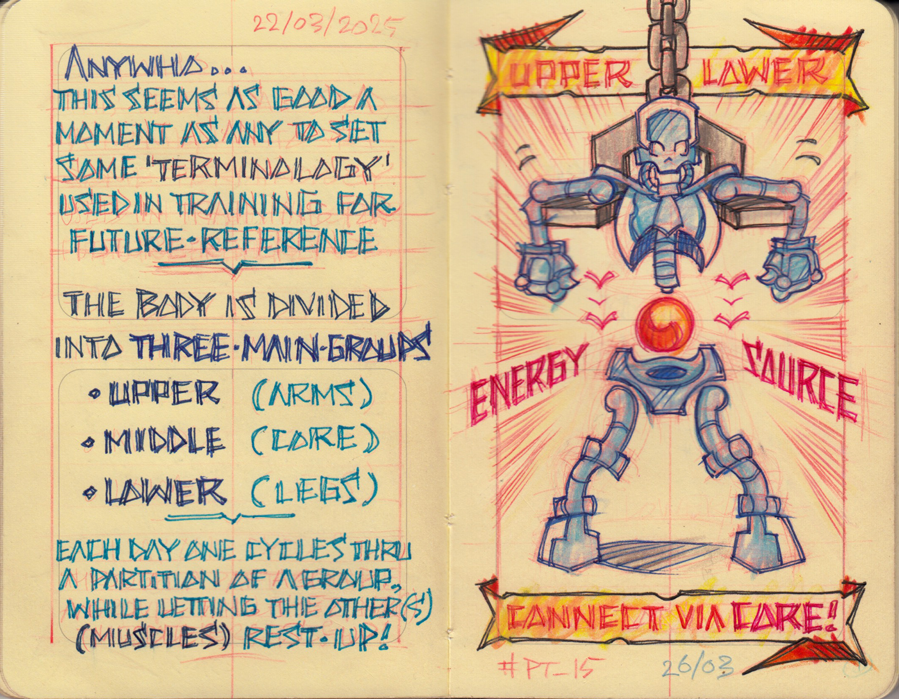 22/03/2025
ANYWHO...
THIS SEEMS AS GOOD A
MOMENT AS ANY TO SET
SOME 'TERMINOLOGY'
USED IN TRAINING FOR
FUTURE·REFERENCE
THE BODY IS DIVIDED
INTO THREE·MAIN·GROUPS
• UPPER (ARMS)
• MIDDLE (CORE)
• LOWER (LEGS)
EACH DAY ONE CYCLES THRU
A PARTITION OF A GROUP,
WHILE LETTING THE OTHER(S)
(MUSCLES) REST·UP!
UPPER LOWER
ENERGY SOURCE
CONNECT VIA CORE!
#PT_15 26/03